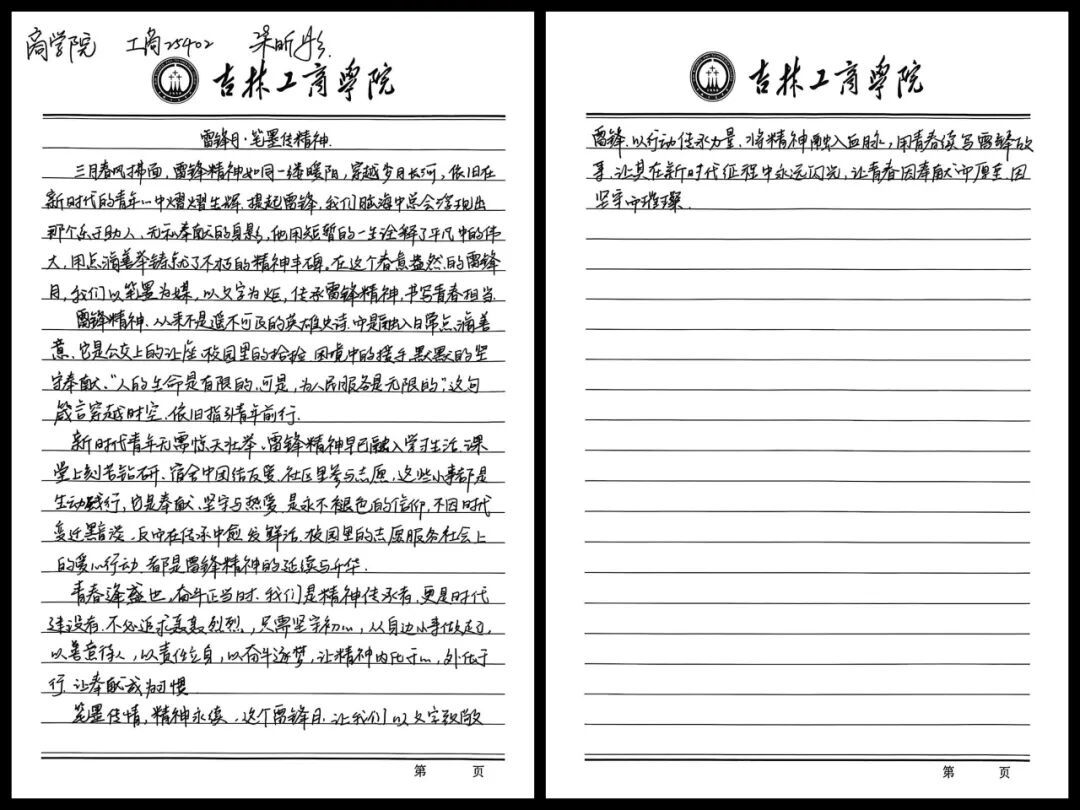 商学院 工商25402 梁昕彤
吉林工商学院
雷锋月·笔墨传精神
三月春风拂面，雷锋精神如同一缕暖阳，穿越岁月长河，依旧在
新时代的青年心中熠熠生辉。提起雷锋，我们脑海中总会浮现出
那个乐于助人、无私奉献的身影，他用短暂的一生诠释了平凡中的伟
大，用点滴善举铸就了不朽的精神丰碑。在这个春意盎然的雷锋
月，我们以笔墨为媒，以文字为炬，传承雷锋精神，书写青春担当
雷锋精神，从来不是遥不可及的英雄史诗，而是融入日常点滴善
意，它是公交上的让座，校园里的捡拾，困境中的援手，默默的坚
守奉献，"人的生命是有限的，可是，为人民服务是无限的"，这句
箴言穿越时空，依旧指引青年前行。
新时代青年无需惊天壮举，雷锋精神早已融入学习生活，课
堂上刻苦钻研，宿舍中团结友爱，社区里参与志愿，这些小事都是
生动践行，它是奉献、坚守与热爱，是永不褪色的信仰，不因时代
变迁黯淡，反而在传承中愈发鲜活，校园里的志愿服务社会上
的爱心行动，都是雷锋精神的延续与升华。
青春逢盛世，奋斗正当时，我们是精神传承者，更是时代
建设者，不必追求轰轰烈烈，只需坚守初心，从身边小事做起，
以善意待人，以责任立身，以奋斗逐梦，让精神内化于心，外化于
行，让奉献成为习惯
笔墨传情，精神永续，这个雷锋月，让我们以文字致敬
第 页
吉林工商学院
雷锋，以行动传承力量，将精神融入血脉，用青春续写雷锋故
事，让其在新时代征程中永远闪光，让青春因奉献而厚重，因
坚守而璀璨。
第 页